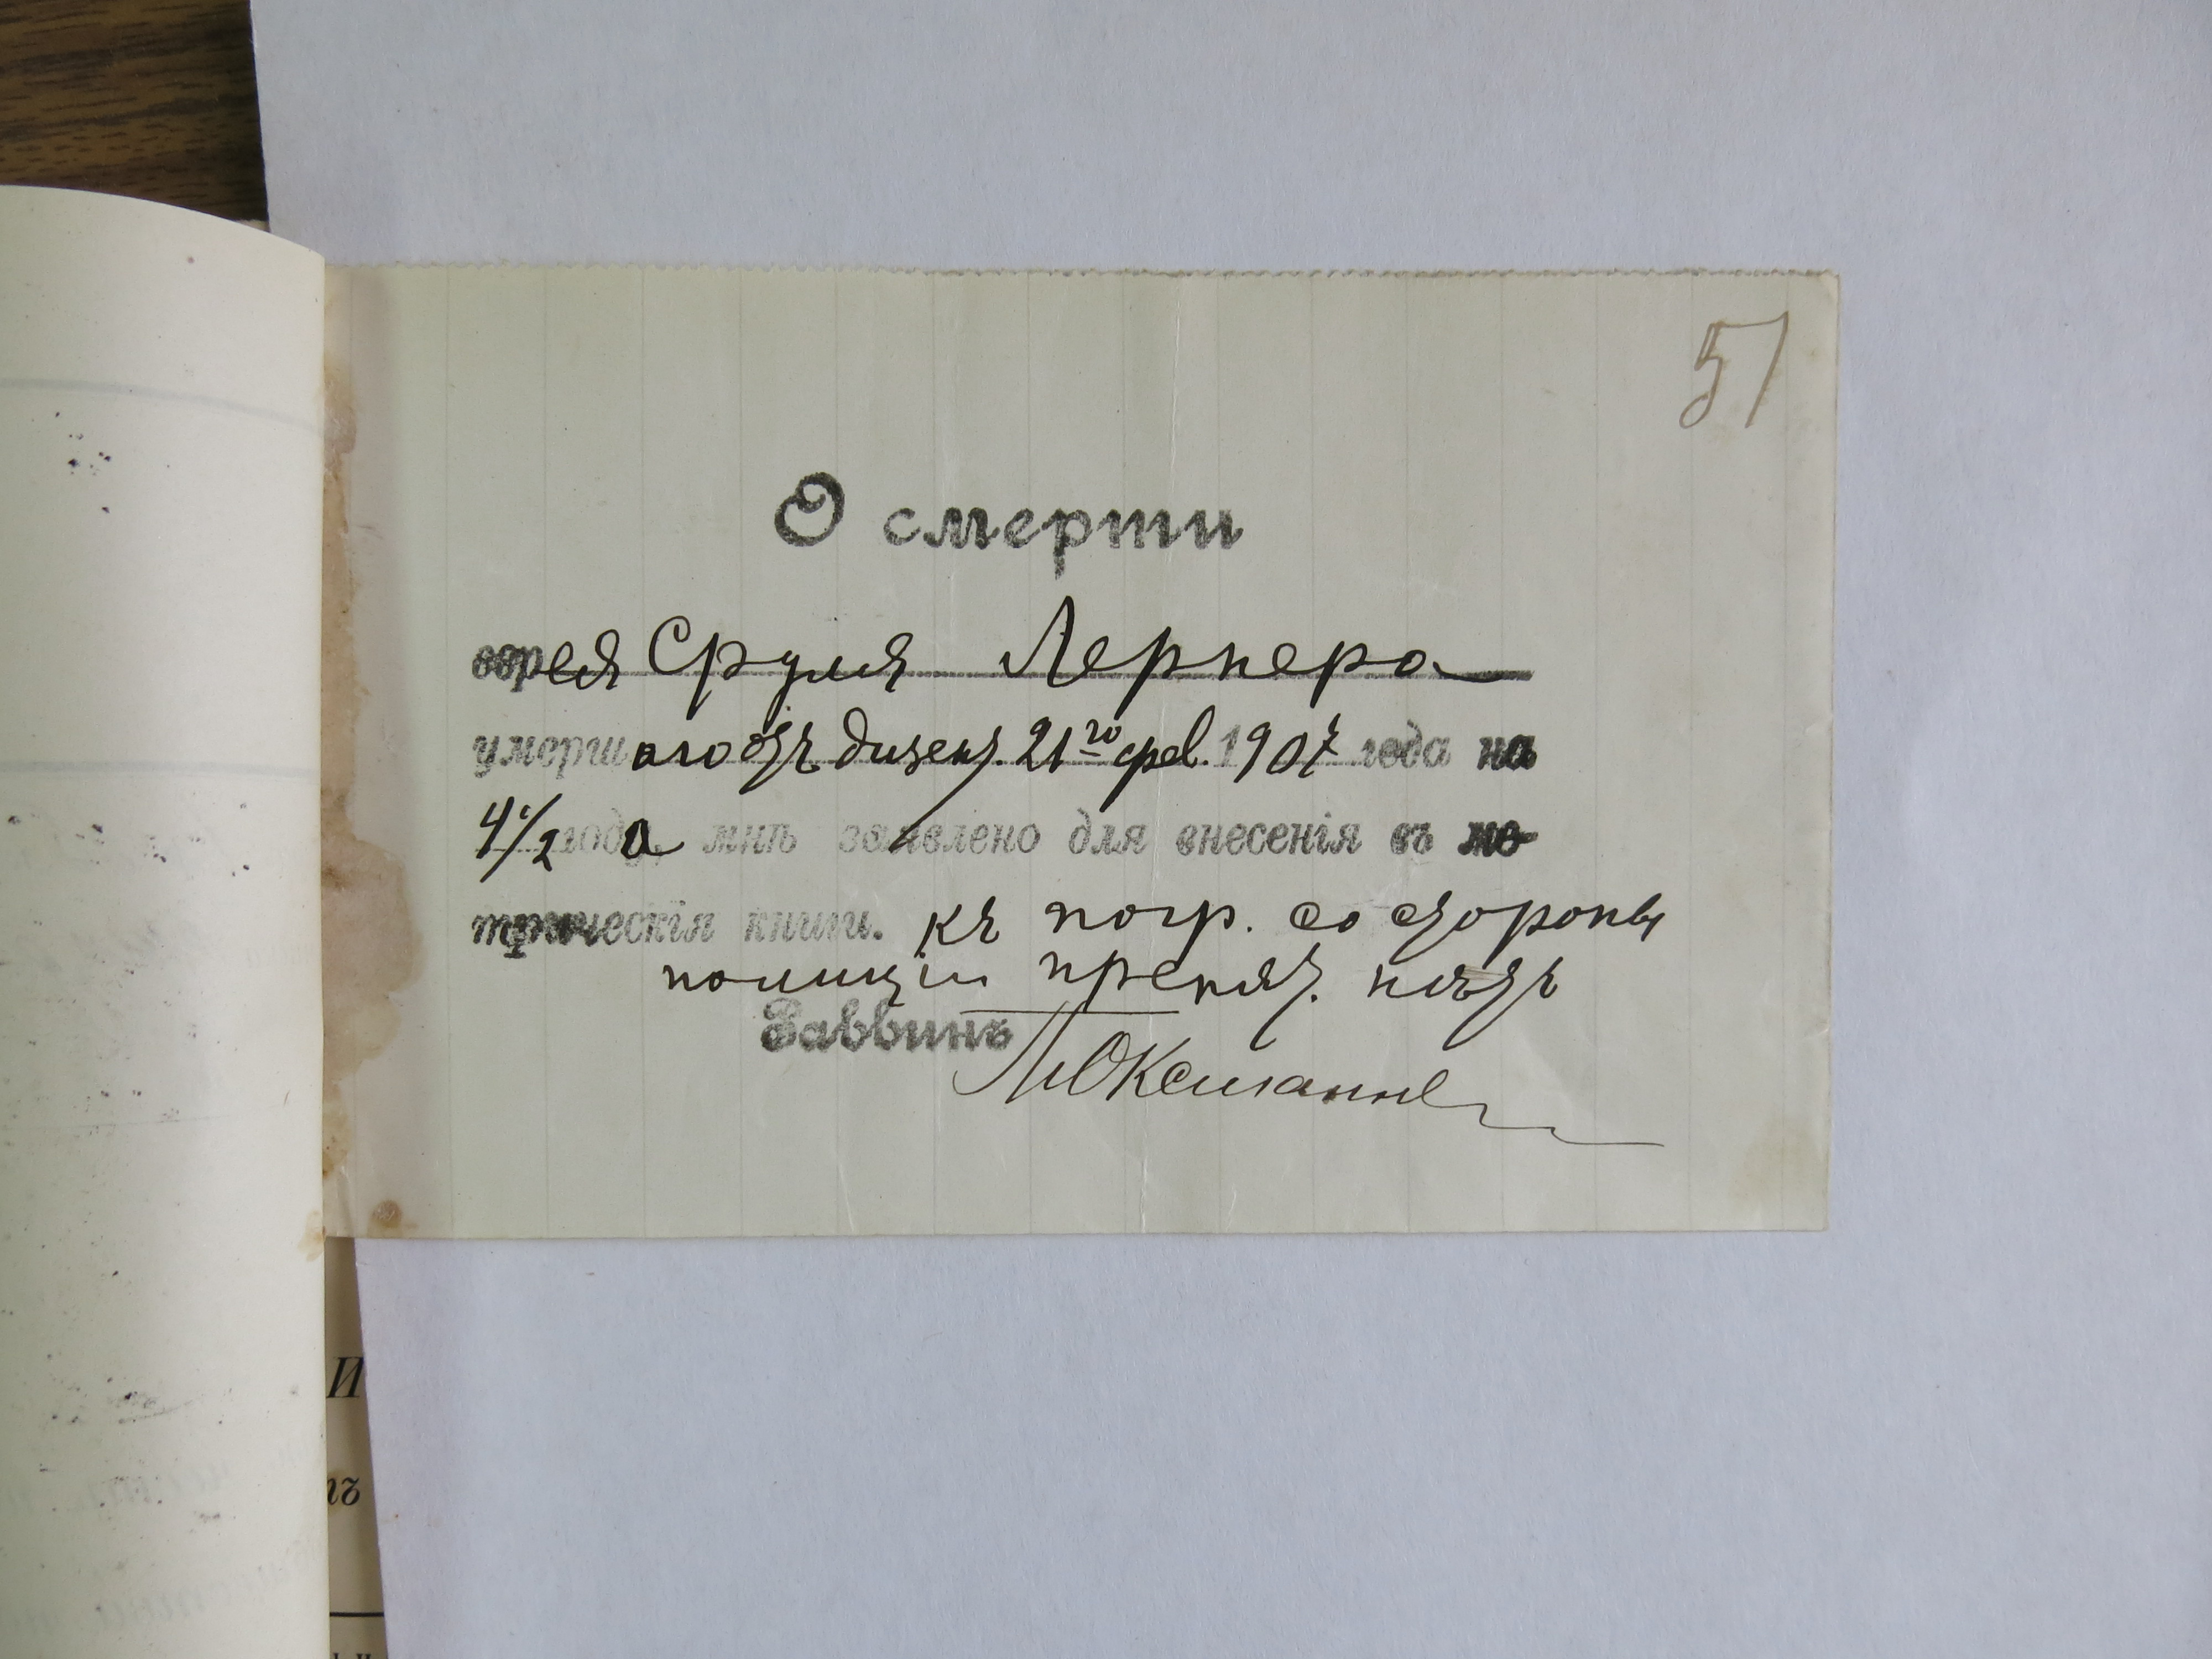 51
О смерти
еврея Сруля Лернера
умершаго отъ дизент. 21го фев. 1907 года на
4 1/2 году, а мнѣ заявлено для внесенія въ ме-
трическія книги. къ погр. со стороны
полиціи препят. нѣтъ
Раввинъ
И
тъ